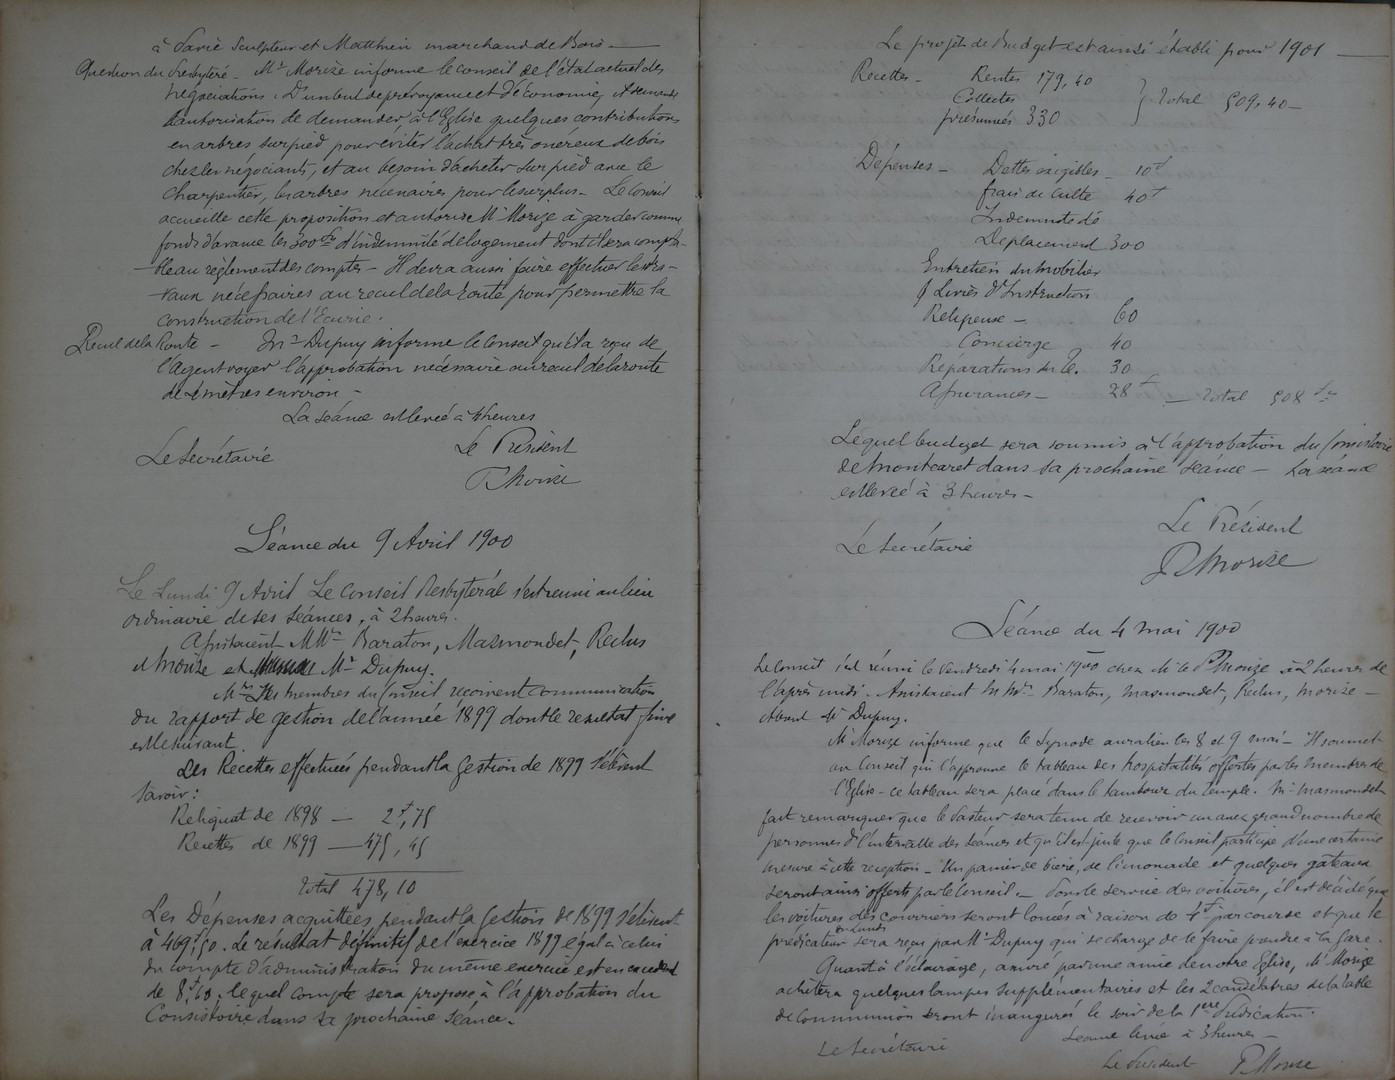 à Favié Sculpteur et Matthieu marchand de Bois —
Question du Presbytère – Mr Morize informe le conseil de l'état actuel des
négociations. D'un but de prévoyance et d'économie, il demande
l'autorisation de demander à l'Eglise quelques contributions
en arbres sur pied pour éviter l'achat très onéreux de bois
chez les négociants, et au besoin d'acheter sur pied avec le
charpentier, les arbres nécessaires pour le surplus – Le Conseil
accueille cette proposition et autorise Mr Morize à garder comme
fonds d'avance les 300 frs d'indemnité de logement dont il sera compta-
ble au règlement des comptes – Il devra aussi faire effectuer les tra-
vaux nécessaires au recul de la route pour permettre la
construction de l'Ecurie.
Recul de la Route – Mr Dupuy informe le Conseil qu'il a reçu de
l'Agent voyer l'approbation nécessaire au recul de la route
de mètres environ –
La séance est levée à 4 heures
Le Secrétaire Le Président
P Morize
Séance du 9 Avril 1900
Le Lundi 9 Avril Le Conseil Presbytéral s'est réuni au lieu
ordinaire de ses séances, à 2 heures.
Assistaient MMrs Baraton, Masmondet, Reclus
et Morize et Mr Dupuy.
Mrs Les membres du Conseil reçoivent communication
du rapport de gestion de l'année 1899 dont le résultat
est le suivant.
Les Recettes effectuées pendant la Gestion de 1899 s'élèvent
savoir:
Reliquat de 1898 — 2f,75
Recettes de 1899 — 475,45
Total 478,10
Les Dépenses acquittées pendant la Gestion de 1899 s'élèvent
à 469f,50. Le résultat définitif de l'exercice 1899 égal à celui
du compte d'administration du même exercice est en excédent
de 8f,60. lequel compte sera proposé à l'approbation du
Consistoire dans sa prochaine séance.
Le projet de Budget est ainsi établi pour 1901 —
Recettes – Rentes 179,40
Collectes Total 509,40 –
présumées 330
Dépenses – Dettes exigibles – 10f
frais de Culte 40f
Indemnité de
Déplacement 300
Entretien du Mobilier
& Livres d'Instruction
Religieuse – 60
Concierge 40
Réparations du T. 30
Assurances – 28f — Total 508 frs
Lequel budget sera soumis à l'approbation du Consistoire
de Montcaret dans sa prochaine séance – La séance
est levée à 3 heures –
Le Président
Le Secrétaire
P Morize
Séance du 4 mai 1900
Le Conseil s'est réuni le Vendredi 4 mai 1900 chez Mr le Pr Morize à 2 heures de
l'après midi. Assistaient M Mrs Baraton, Masmondet, Reclus, Morize –
Absent Mr Dupuy.
Mr Morize informe que le Synode aura lieu les 8 et 9 mai – Il soumet
au Conseil qui l'approuve le tableau des hospitalités offertes par les membres de
l'Eglise – ce tableau sera placé dans le tambour du temple. Mr Masmondet
fait remarquer que le Pasteur sera tenu de recevoir un assez grand nombre de
personnes dans l'intervalle des séances et qu'il est juste que le Conseil participe d'une certaine
mesure à cette réception – Un panier de bière, de limonade et quelques gâteaux
seront ainsi offerts par le Conseil – Pour le service des voitures, il est décidé que
les voitures des courriers seront louées à raison de 4f par course et que le
du Lundi
prédicateur sera reçu par Mr Dupuy qui se charge de le faire prendre à la gare.
Quant à l'éclairage, assuré par une amie de notre Eglise, Mr Morize
achètera quelques lampes supplémentaires et les 2 candélabres de la table
de Communion seront inaugurés le soir de la 1ere Prédication.
Séance levée à 3 heures –
Le Secrétaire
Le Président P. Morize